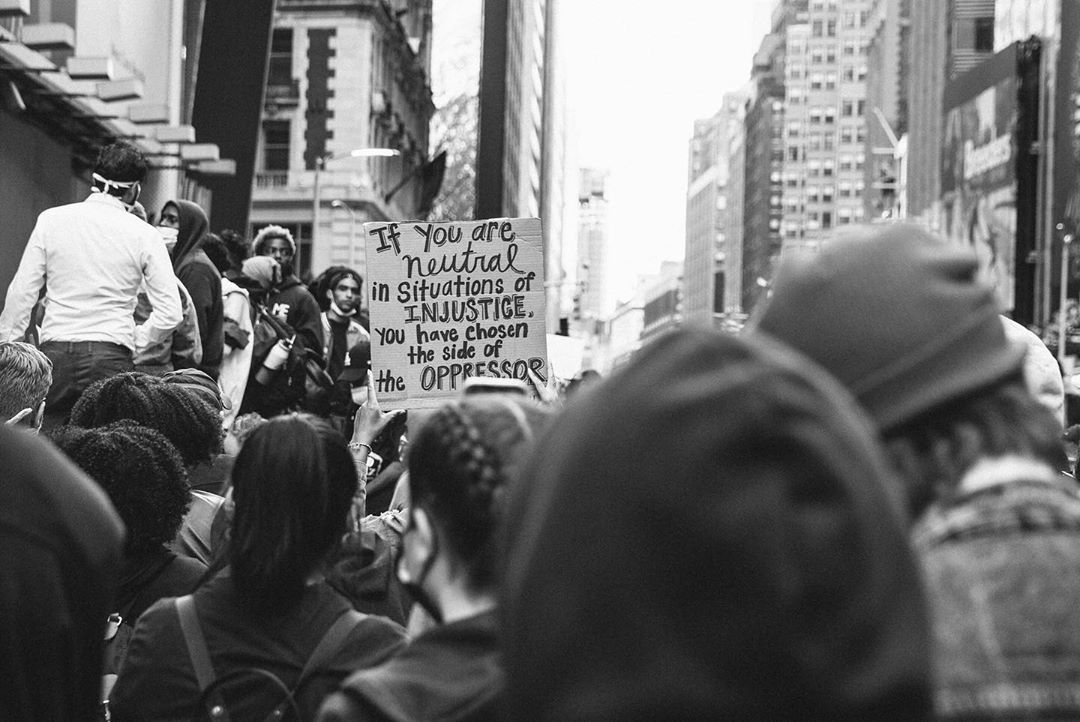 If you are
neutral
in Situations of
INJUSTICE,
you have chosen
the side of
the OPPRESSOR